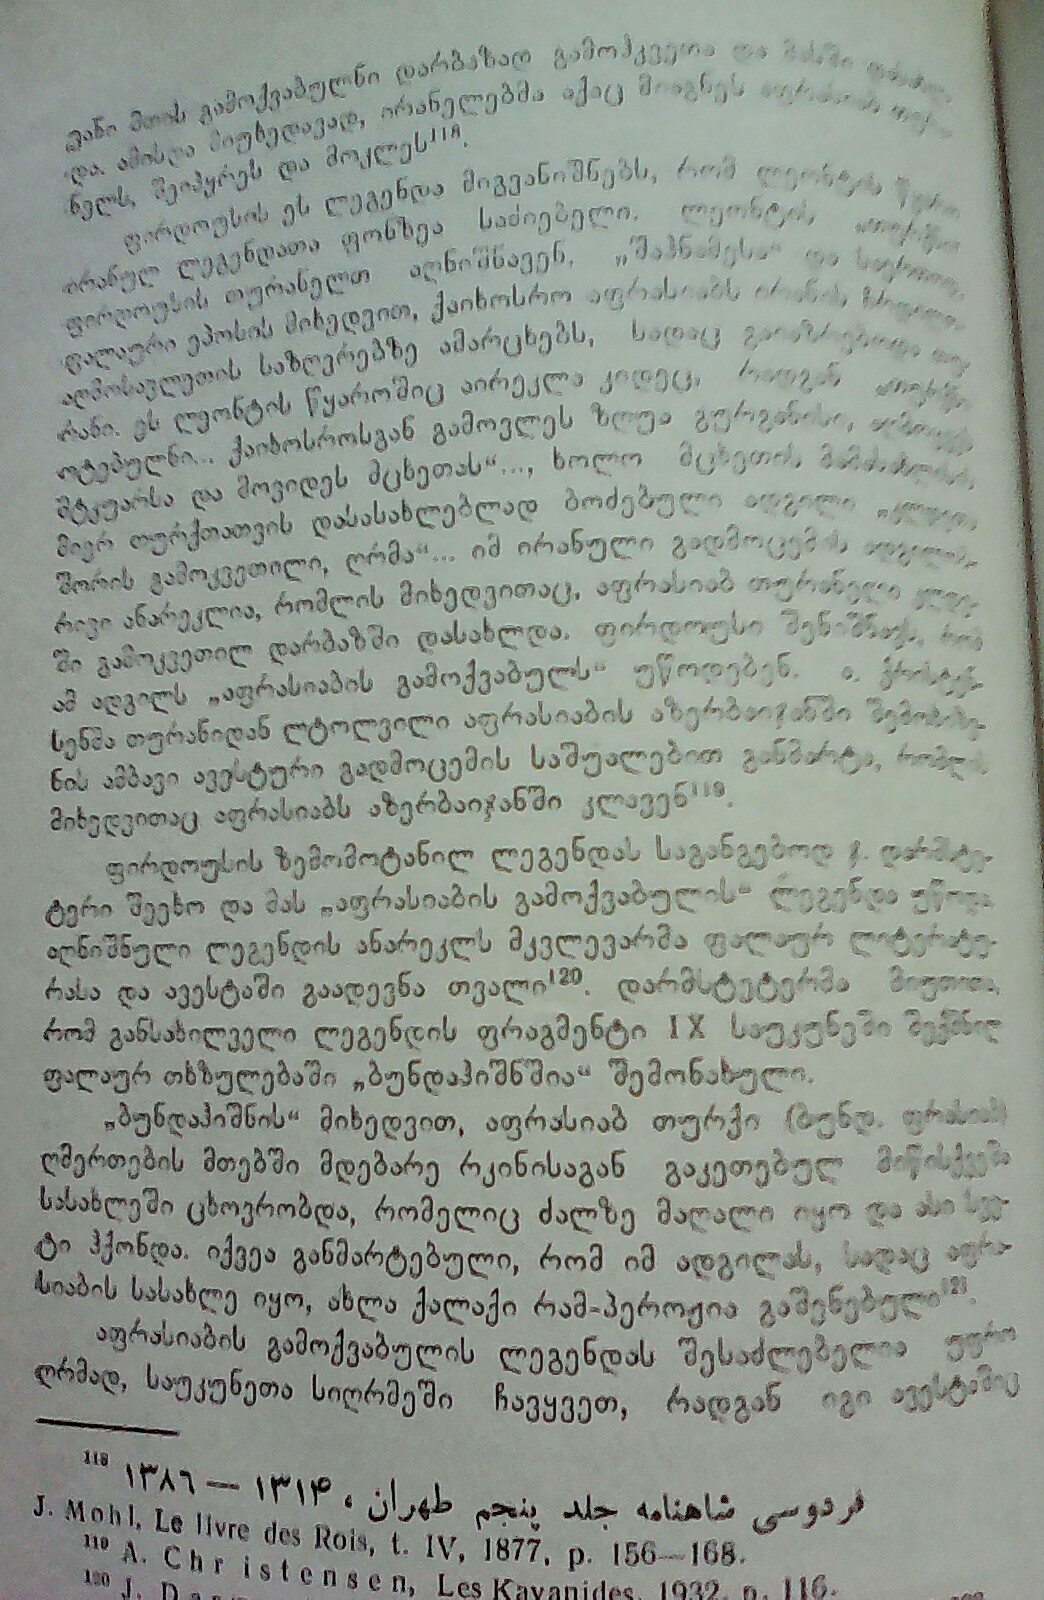 ვანი მთის გამოქვაბულნი დარბაზად გამოჰკვეთა და მასში
და. ამისდა მიუხედავად, ირანელებმა აქაც მიაგნეს
ნელს, შეიპყრეს და მოკლეს¹¹⁸.
ფირდოუსის ეს ლეგენდა მიგვანიშნებს, რომ ლეონტის წყარო
ირანულ ლეგენდათა ფონზეა საძიებელი. ლეონტის
ფირდოუსის თურანელთ აღნიშნავენ. „შაჰნამესა“ და
ფალაური ეპოსის მიხედვით, ქაიხოსრო აფრასიაბს ირანის
აღმოსავლეთის საზღვრებზე ამარცხებს, სადაც
რანი. ეს ლეონტის წყაროშიც აირეკლა კიდეც, რადგან
ოტებულნი... ქაიხოსროსგან გამოვლეს ზღუა გურგანისი,
მტკუარსა და მოვიდეს მცხეთას“..., ხოლო მცხეთის
მიერ თურქთათვის დასასახლებლად ბოძებული ადგილი
შორის გამოკვეთილი, ღრმა“... იმ ირანული გადმოცემის
რივი ანარეკლია, რომლის მიხედვითაც, აფრასიაბ თურანელი
ში გამოკვეთილ დარბაზში დასახლდა. ფირდოუსი შენიშნავს, რომ
ამ ადგილს „აფრასიაბის გამოქვაბულს“ უწოდებენ. ა. ქრისტენ-
სენმა თურანიდან ლტოლვილი აფრასიაბის აზერბაიჯანში
ნის ამბავი ავესტური გადმოცემის საშუალებით განმარტა, რომლის
მიხედვითაც აფრასიაბს აზერბაიჯანში კლავენ¹¹⁹.
ფირდოუსის ზემომოტანილ ლეგენდას საგანგებოდ ჯ. დარმსტე-
ტერი შეეხო და მას „აფრასიაბის გამოქვაბულის“ ლეგენდა უწოდა
აღნიშნული ლეგენდის ანარეკლს მკვლევარმა ფალაურ ლიტერატუ-
რასა და ავესტაში გაადევნა თვალი¹²⁰. დარმსტეტერმა მიუთითა,
რომ განსახილველი ლეგენდის ფრაგმენტი IX საუკუნეში შექმნილ
ფალაურ თხზულებაში „ბუნდაჰიშნშია“ შემონახული.
„ბუნდაჰიშნის“ მიხედვით, აფრასიაბ თურქი (ბუნდ. ფრასიაბ)
ღმერთების მთებში მდებარე რკინისაგან გაკეთებულ მიწისქვეშა
სასახლეში ცხოვრობდა, რომელიც ძალზე მაღალი იყო და ასი სვე-
ტი ჰქონდა. იქვეა განმარტებული, რომ იმ ადგილას, სადაც აფრა-
სიაბის სასახლე იყო, ახლა ქალაქი რამ-პეროჟია გაშენებული¹²¹.
აფრასიაბის გამოქვაბულის ლეგენდას შესაძლებელია უფრო
ღრმად, საუკუნეთა სიღრმეში ჩავყვეთ, რადგან იგი ავესტაშიც
¹¹⁸ فردوسی شاهنامه جلد پنجم طهران، ۱۳۱۴ — ۱۳۸٦
J. Mohl, Le livre des Rois, t. IV, 1877, p. 156—168.
¹¹⁹ A. Christensen, Les Kayanides, 1932, p. 116.
¹²⁰ J.